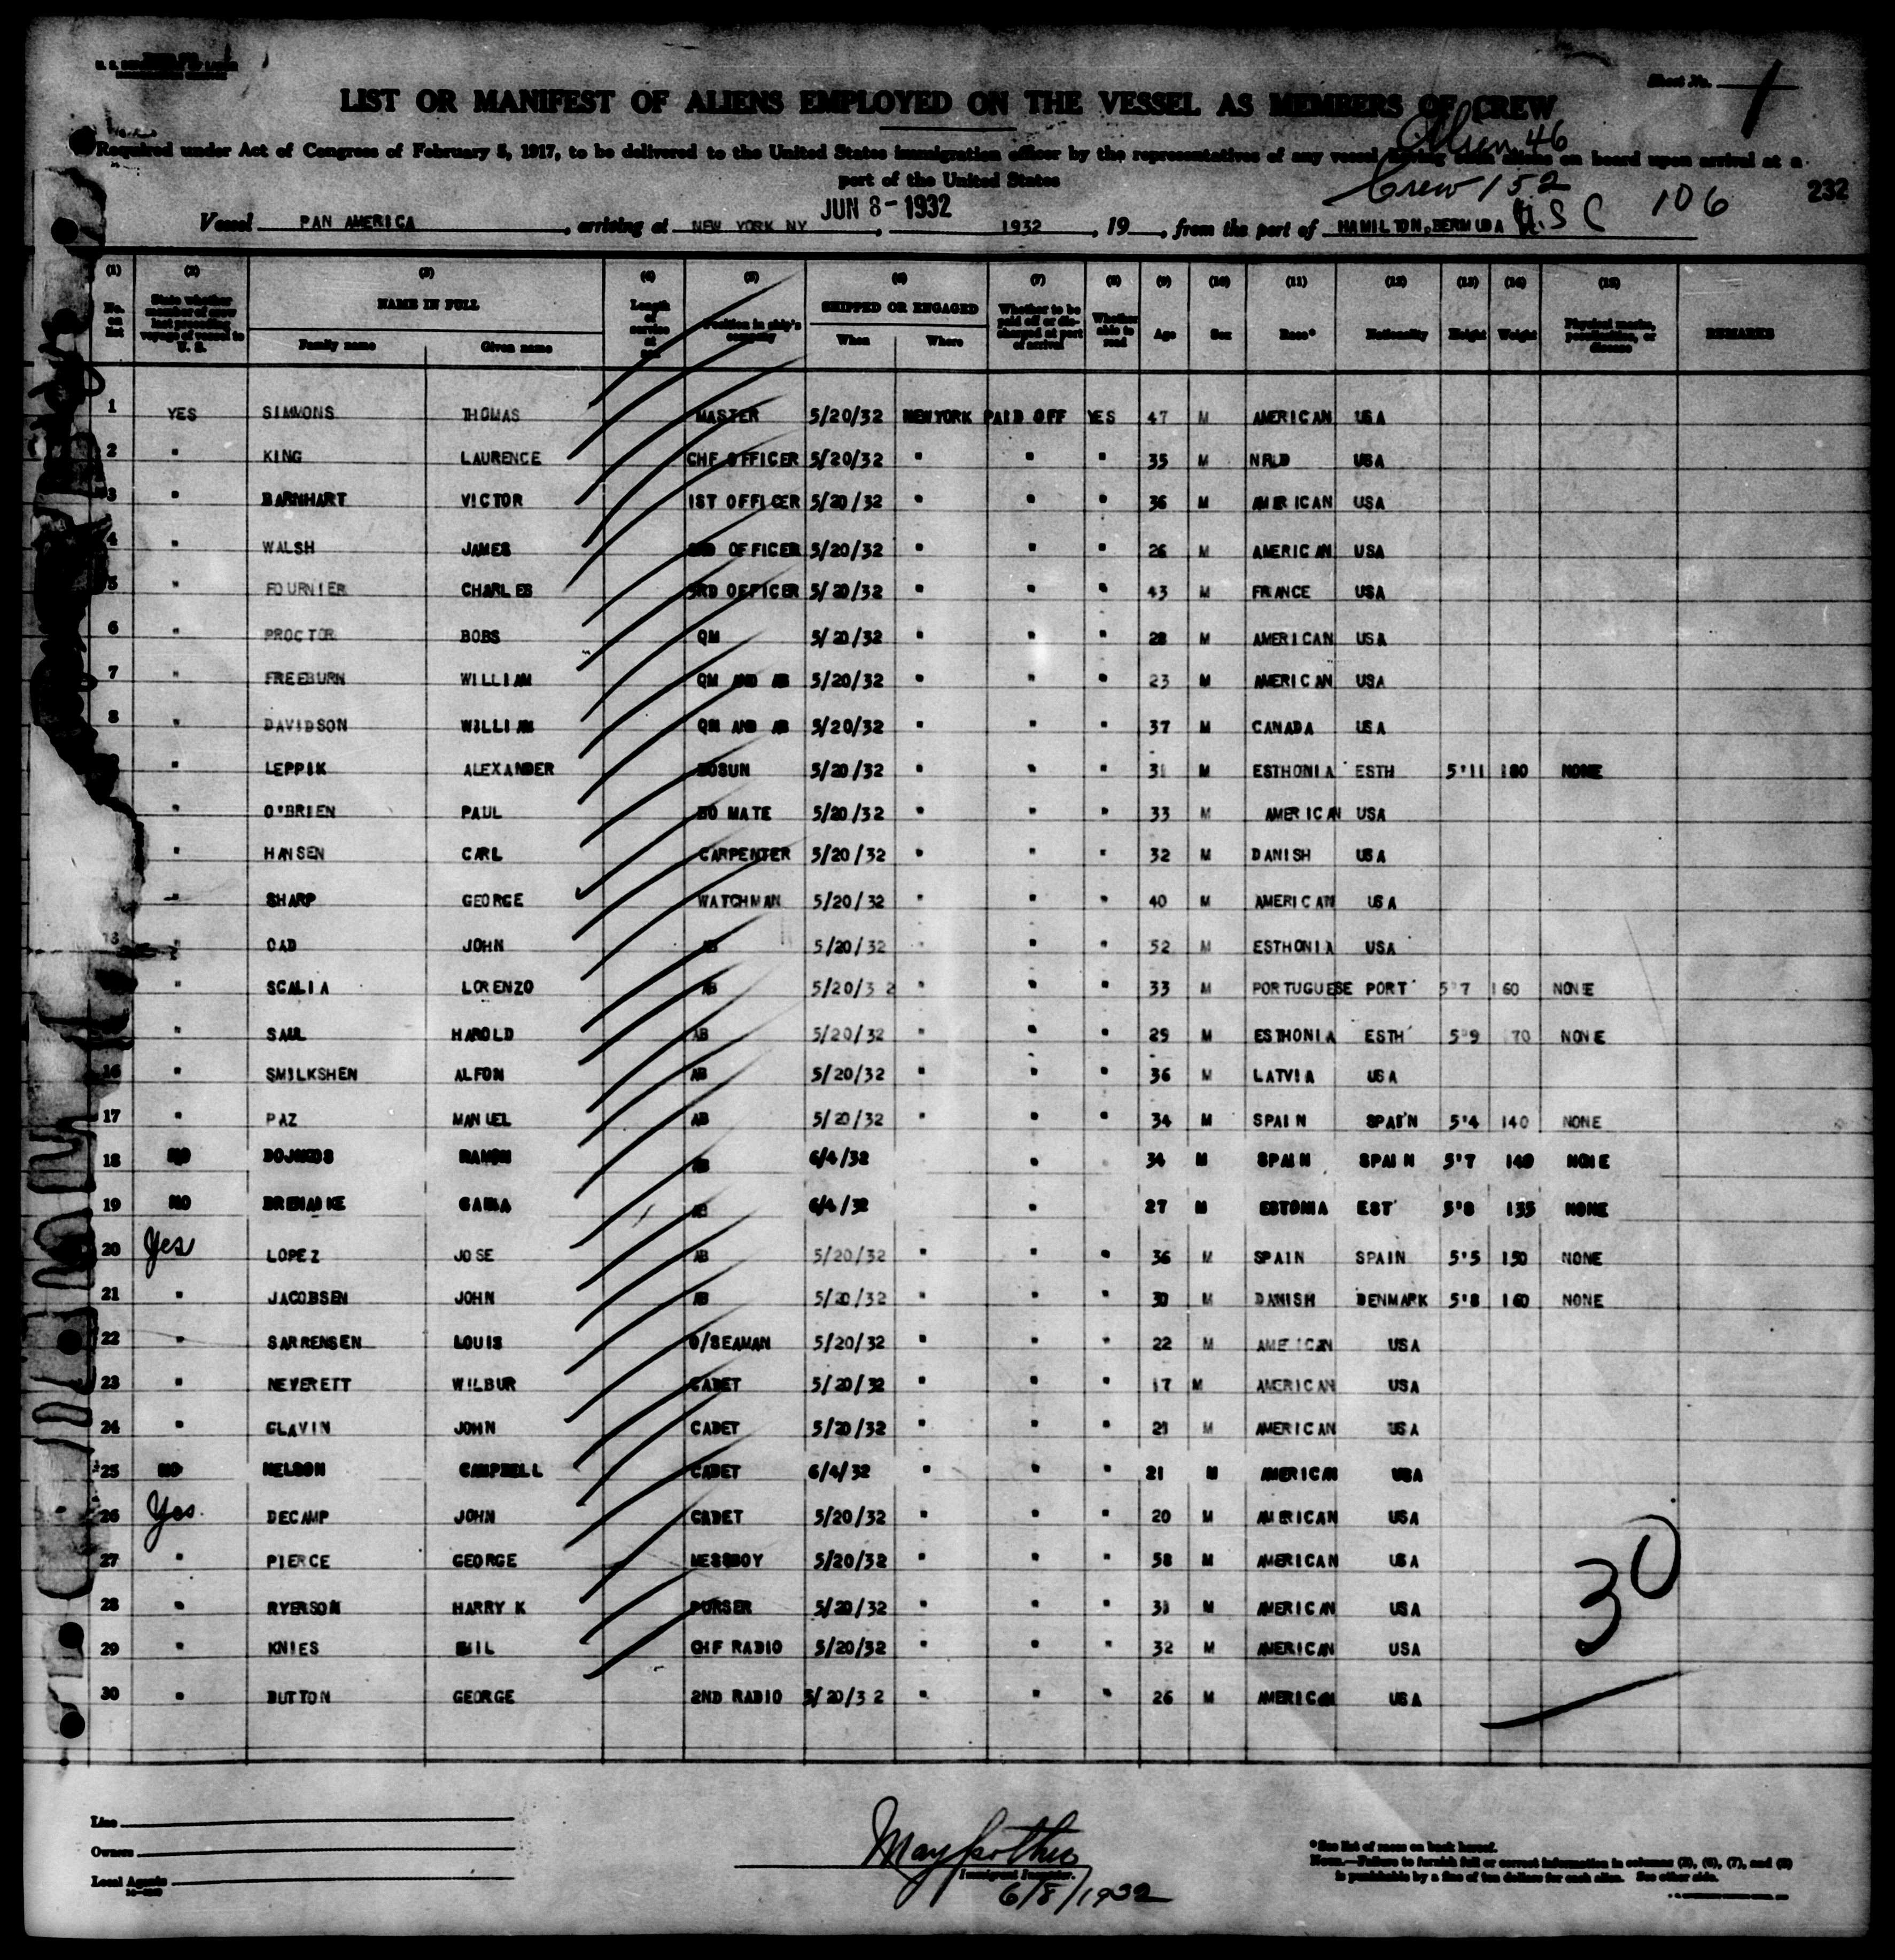 Sheet No. 1
LIST OR MANIFEST OF ALIENS EMPLOYED ON THE VESSEL AS MEMBERS OF CREW
46
Required under Act of Congress of February 5, 1917, to be delivered to the United States immigration officer by the representatives of any vessel having such aliens on board upon arrival at a
port of the United States
Crew 152
232
JUN 8 - 1932
U.S C 106
Vessel PAN AMERICA, arriving at NEW YORK NY, 1932, 19, from the port of HAMILTON, BERMUDA
(1) (2) (3) (4) (5) (6) (7) (8) (9) (10) (11) (12) (13) (14) (15)
No. on list State whether member of crew last previous voyage of vessel to U. S. NAME IN FULL Family name Given name Length of service at sea Position in ship's company SHIPPED OR ENGAGED When Where Whether to be paid off or discharged at port of arrival Whether able to read Age Sex Race* Nationality Height Weight Physical marks, peculiarities, or disease REMARKS
1 YES SIMMONS THOMAS MASTER 5/20/32 NEWYORK PAID OFF YES 47 M AMERICAN USA
2 " KING LAURENCE CHF OFFICER 5/20/32 " " " 35 M NRLD USA
3 " BARNHART VICTOR 1ST OFFICER 5/20/32 " " " 36 M AMERICAN USA
4 " WALSH JAMES 2ND OFFICER 5/20/32 " " " 26 M AMERICAN USA
5 " FOURNIER CHARLES 3RD OFFICER 5/20/32 " " " 43 M FRANCE USA
6 " PROCTOR BOBS QM 5/20/32 " " " 28 M AMERICAN USA
7 " FREEBURN WILLIAM QM AND AB 5/20/32 " " " 23 M AMERICAN USA
8 " DAVIDSON WILLIAM QM AND AB 5/20/32 " " " 37 M CANADA USA
" LEPPIK ALEXANDER BOSUN 5/20/32 " " " 31 M ESTHONIA ESTH 5'11 180 NONE
" O'BRIEN PAUL BO MATE 5/20/32 " " " 33 M AMERICAN USA
" HANSEN CARL CARPENTER 5/20/32 " " " 32 M DANISH USA
" SHARP GEORGE WATCHMAN 5/20/32 " " " 40 M AMERICAN USA
" OAD JOHN AB 5/20/32 " " " 52 M ESTHONIA USA
" SCALIA LORENZO AB 5/20/32 " " " 33 M PORTUGUESE PORT 5'7 160 NONE
" SAUL HAROLD AB 5/20/32 " " " 29 M ESTHONIA ESTH 5'9 70 NONE
16 " SMILKSHEN ALFON AB 5/20/32 " " " 36 M LATVIA USA
17 " PAZ MANUEL AB 5/20/32 " " " 34 M SPAIN SPAIN 5'4 140 NONE
18 NO RAMON AB 6/4/32 " 34 M SPAIN SPAIN 5'7 140 NONE
19 NO AB 6/4/32 " 27 M ESTONIA EST 5'8 135 NONE
20 Yes LOPEZ JOSE AB 5/20/32 " " " 36 M SPAIN SPAIN 5'5 150 NONE
21 " JACOBSEN JOHN AB 5/20/32 " " " 30 M DANISH DENMARK 5'8 160 NONE
22 " SARRENSEN LOUIS O/SEAMAN 5/20/32 " " " 22 M AMERICAN USA
23 " NEVERETT WILBUR CADET 5/20/32 " " " 17 M AMERICAN USA
24 " GLAVIN JOHN CADET 5/20/32 " " " 21 M AMERICAN USA
25 NO NELSON CAMPBELL CADET 6/4/32 " " " 21 M AMERICAN USA
26 Yes DECAMP JOHN CADET 5/20/32 " " " 20 M AMERICAN USA
27 " PIERCE GEORGE MESSBOY 5/20/32 " " " 58 M AMERICAN USA
28 " RYERSON HARRY K PURSER 5/20/32 " " " 31 M AMERICAN USA
29 " KNIES EMIL CHF RADIO 5/20/32 " " " 32 M AMERICAN USA
30 " DUTTON GEORGE 2ND RADIO 5/20/32 " " " 26 M AMERICAN USA
30
Line
Owners
Local Agents
Immigrant Inspector.
6/8/1932
*See list of races on back hereof.
NOTE.—Failure to furnish full or correct information in columns (3), (5), (7), and (8)
is punishable by a fine of ten dollars for each alien. See other side.